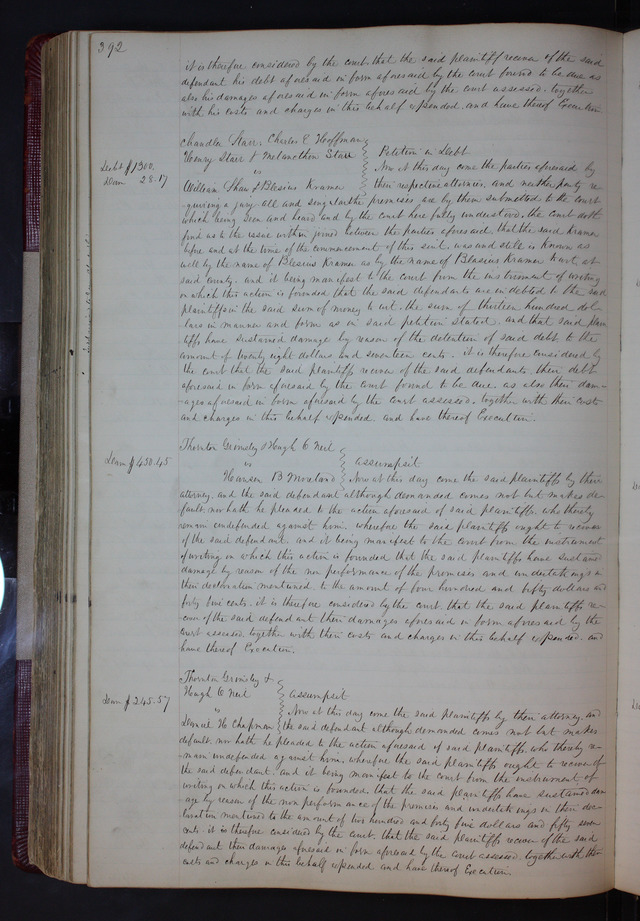 392
it is therefore considered by the court, that the said plaintiff recover of the said
defendant his debt aforesaid in form aforesaid by the court found to be due as
also his damages aforesaid in form aforesaid by the court assessed, together
with his costs and charges in this behalf expended, and have thereof Execution
Chandler Starr, Charles E Hoffman
Henry Starr & Melancthon Starr Petition in Debt
Debt $1300.
Dam 28.17
vs Now at this day come the parties aforesaid by
William Shaw & Blasius Kramer their respective attornies, and neither party re-
-quiring a jury all and singular the premises are by them submitted to the court
which being seen and heard and by the court here fully understood, the court doth
find as to the issue within joined between the parties aforesaid that the said Kramer
before and at the time of the commencement of this suit, was and still is known as
well by the name of Blasius Kramer as by the name of Blasius Kramer
said county. and it being manifest to the court from the instrument of writing
on which this action is founded that the said defendants are indebted to the said
plaintiffs in the said sum of money to wit, the sum of thirteen hundred dol-
lars in manner and form as in said petition stated, and that said plain
tiffs have sustained damage by reason of the detention of said debt to the
amount of twenty eight dollars and seventeen cents. it is therefore considered by
the court that the said plaintiffs recover of the said defendants their debt
aforesaid in form aforesaid by the court found to be due, as also their dam-
-ages aforesaid in form aforesaid by the court assessed, together with their costs
and charges in this behalf expended, and have thereof Execution.
Thornton Grimsley & Hugh O Neil
Dam $450.45
vs assumpsit
Hanson B Moreland Now at this day come the said plaintiffs by their
attorney, and the said defendant although demanded comes not but makes de-
fault, nor hath he pleaded to the action aforesaid of said plaintiffs, who thereby
remain undefended against him. wherefore the said plaintiffs ought to recover
of the said defendant. and it being manifest to the court from the instrument
of writing on which this action is founded that the said plaintiffs have sustained
damage by reason of the non performance of the promises and undertakings in
their declaration mentioned, to the amount of four hundred and fifty dollars and
forty five cents. it is therefore considered by the court, that the said plaintiffs re-
cover of the said defendant their damages aforesaid in form aforesaid by the
court assessed, together with their costs and charges in this behalf expended, and
have thereof Execution.
Thornton Grimsley &
Hugh O Neil assumpsit
Dam $245.57
vs Now at this day come the said plaintiffs by their attorney, and
Samuel H Chapman the said defendant although demanded comes not but makes
default, nor hath he pleaded to the action aforesaid of said plaintiffs, who thereby re-
-main undefended against him, wherefore the said plaintiffs ought to recover of
the said defendant. and it being manifest to the court from the instrument of
writing on which this action is founded, that the said plaintiffs have sustained dam
-age by reason of the non performance of the promises and undertakings in their dec-
laration mentioned to the amount of two hundred and forty five dollars and fifty seven
cents. it is therefore considered by the court, that the said plaintiffs recover of the said
defendant their damages aforesaid in form aforesaid by the court assessed, together with their
costs and charges in this behalf expended, and have thereof Execution.